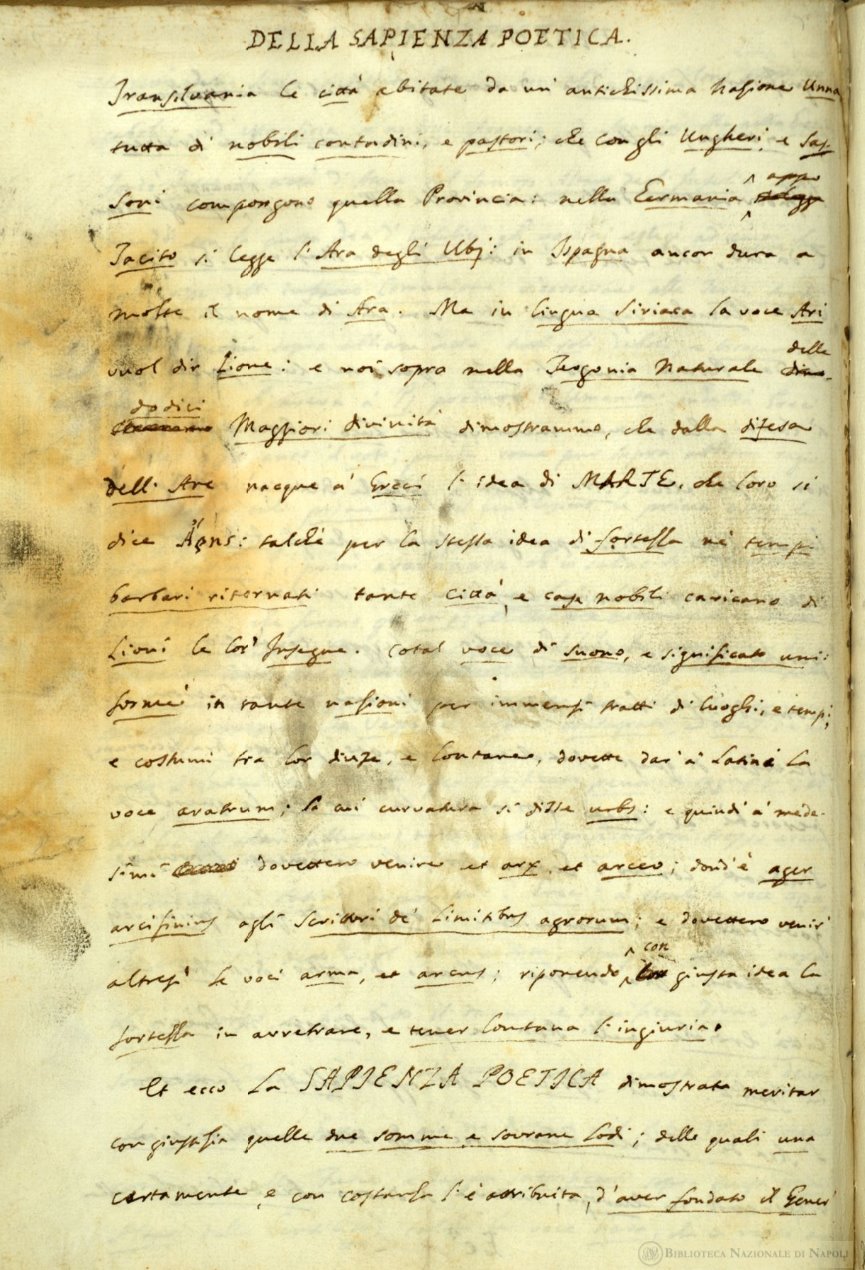 DELLA SAPIENZA POETICA.
Transilvania le città abitate da un' antichissima Nazione Unna
tutta di nobili contadini, e pastori; che con gli Ungheri, e Sas-
soni compongono quella Provincia: nella Germania appo
Tacito si legge l'Ara degli Ubj: in Ispagna ancor dura a
molte il nome di Ara. Ma in lingua Siriaca la voce Ari
vuol dir Lione: e noi sopra nella Teogonia Naturale delle
dodici Maggiori divinità dimostrammo, che dalla difesa
dell' Are nacque a' Greci l'idea di MARTE, che loro si
dice Ἄρης: talchè per la stessa idea di fortezza ne' tempi
barbari ritornati tante città, e case nobili caricano di
Lioni le lor' Insegne. Cotal voce di suono, e significato uni-
forme in tante nazioni per immensi tratti di luoghi, e tempi,
e costumi tra lor divise, e lontane, dovette dar' a' Latini la
voce aratrum; la cui curvatura si disse urbs: e quindi a' mede-
simi dovettero venire et arx, et arceo; dond' è ager
arcifinius agli Scrittori de' limitibus agrorum; e dovettero venir'
altresì le voci arma, et arcus; riponendo con giusta idea la
fortezza in arretrare, e tener lontana l'ingiuria.
Et ecco la SAPIENZA POETICA dimostrata meritar
con giustizia quelle due somme e sovrane lodi; delle quali una
certamente, e con costanza l'è attribuita, d'aver fondato il Gener'
BIBLIOTECA NAZIONALE DI NAPOLI